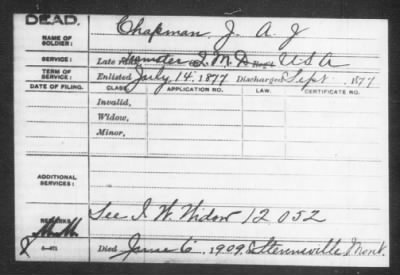 DEAD.
NAME OF SOLDIER: Chapman J. A. J
SERVICE: Late Teamster Q. M. D. Reg't USA
TERM OF SERVICE: Enlisted July 14, 1877 Discharged Sept. 1877
DATE OF FILING. CLASS. APPLICATION NO. LAW. CERTIFICATE NO.
Invalid,
Widow,
Minor,
ADDITIONAL SERVICES:
REMARKS: See I. W. Widow 12052
Died June 6, 1909, Stevensville, Mont.